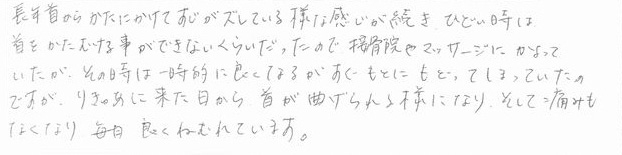 長年首からかたにかけてすじがズレている様な感じが続き ひどい時は
首をかたむける事ができないくらいだったので 接骨院やマッサージにかよって
いたが、その時は一時的に良くなるがすぐもとにもどってしまっていたの
ですが、りきゅあに来た日から 首が曲げられる様になり、そして痛みも
なくなり 毎日 良くねむれています。